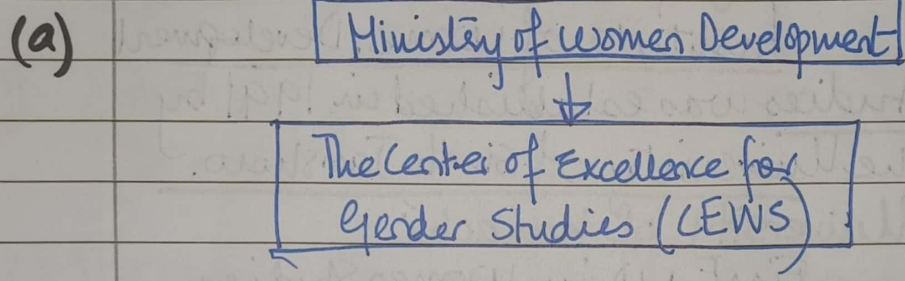 (a)
Ministry of Women Development
The Center of Excellence for
Gender Studies (CEWS)